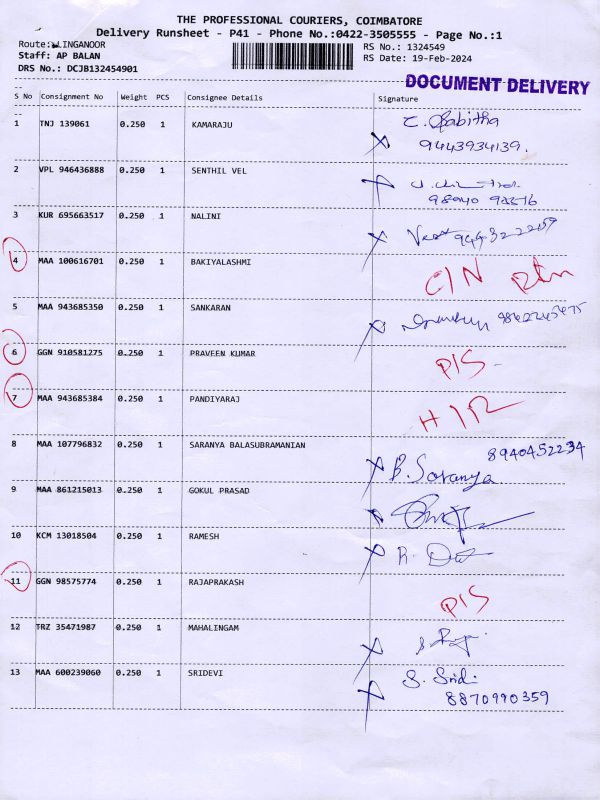 THE PROFESSIONAL COURIERS, COIMBATORE
Delivery Runsheet - P41 - Phone No.:0422-3505555 - Page No.:1
Route: LINGANOOR RS No.: 1324549
Staff: AP BALAN RS Date: 19-Feb-2024
DRS No.: DCJB132454901
DOCUMENT DELIVERY
S No Consignment No Weight PCS Consignee Details Signature
1 TNJ 139061 0.250 1 KAMARAJU
9443934139.
2 VPL 946436888 0.250 1 SENTHIL VEL
3 KUR 695663517 0.250 1 NALINI
4 MAA 100616701 0.250 1 BAKIYALASHMI CIN
5 MAA 943685350 0.250 1 SANKARAN
6 GGN 910581275 0.250 1 PRAVEEN KUMAR PIS
7 MAA 943685384 0.250 1 PANDIYARAJ
8 MAA 107796832 0.250 1 SARANYA BALASUBRAMANIAN 8940452234
B. Soranya
9 MAA 861215013 0.250 1 GOKUL PRASAD
10 KCM 13018504 0.250 1 RAMESH
11 GGN 98575774 0.250 1 RAJAPRAKASH PIS
12 TRZ 35471987 0.250 1 MAHALINGAM
13 MAA 600239060 0.250 1 SRIDEVI S. Sridi
8870990359